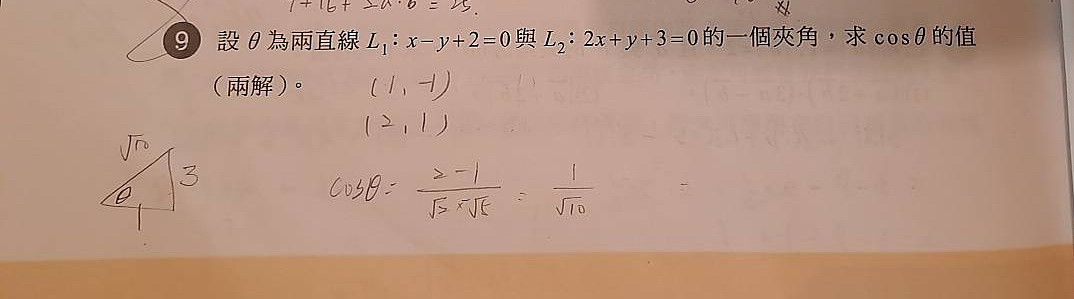 1+16+2a·b=25.
9 設 θ 為兩直線 L₁：x−y+2=0 與 L₂：2x+y+3=0 的一個夾角，求 cosθ 的值
（兩解）。 (1, -1)
(2, 1)
√10 3 θ 1
cosθ = (2-1)/(√2×√5) = 1/√10